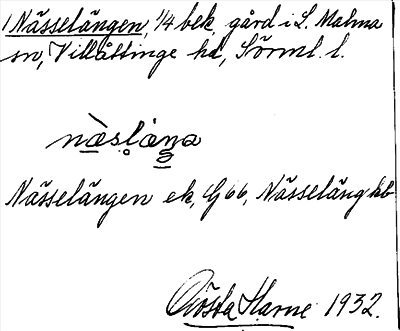 1 Nässelängen, 1/4 bek. gård i L. Malma
sn, Villåttinge hd, Sörml. l.
näslàŋa
Nässelängen ek, G 66, Nässeläng kb
Gösta Harne 1932.